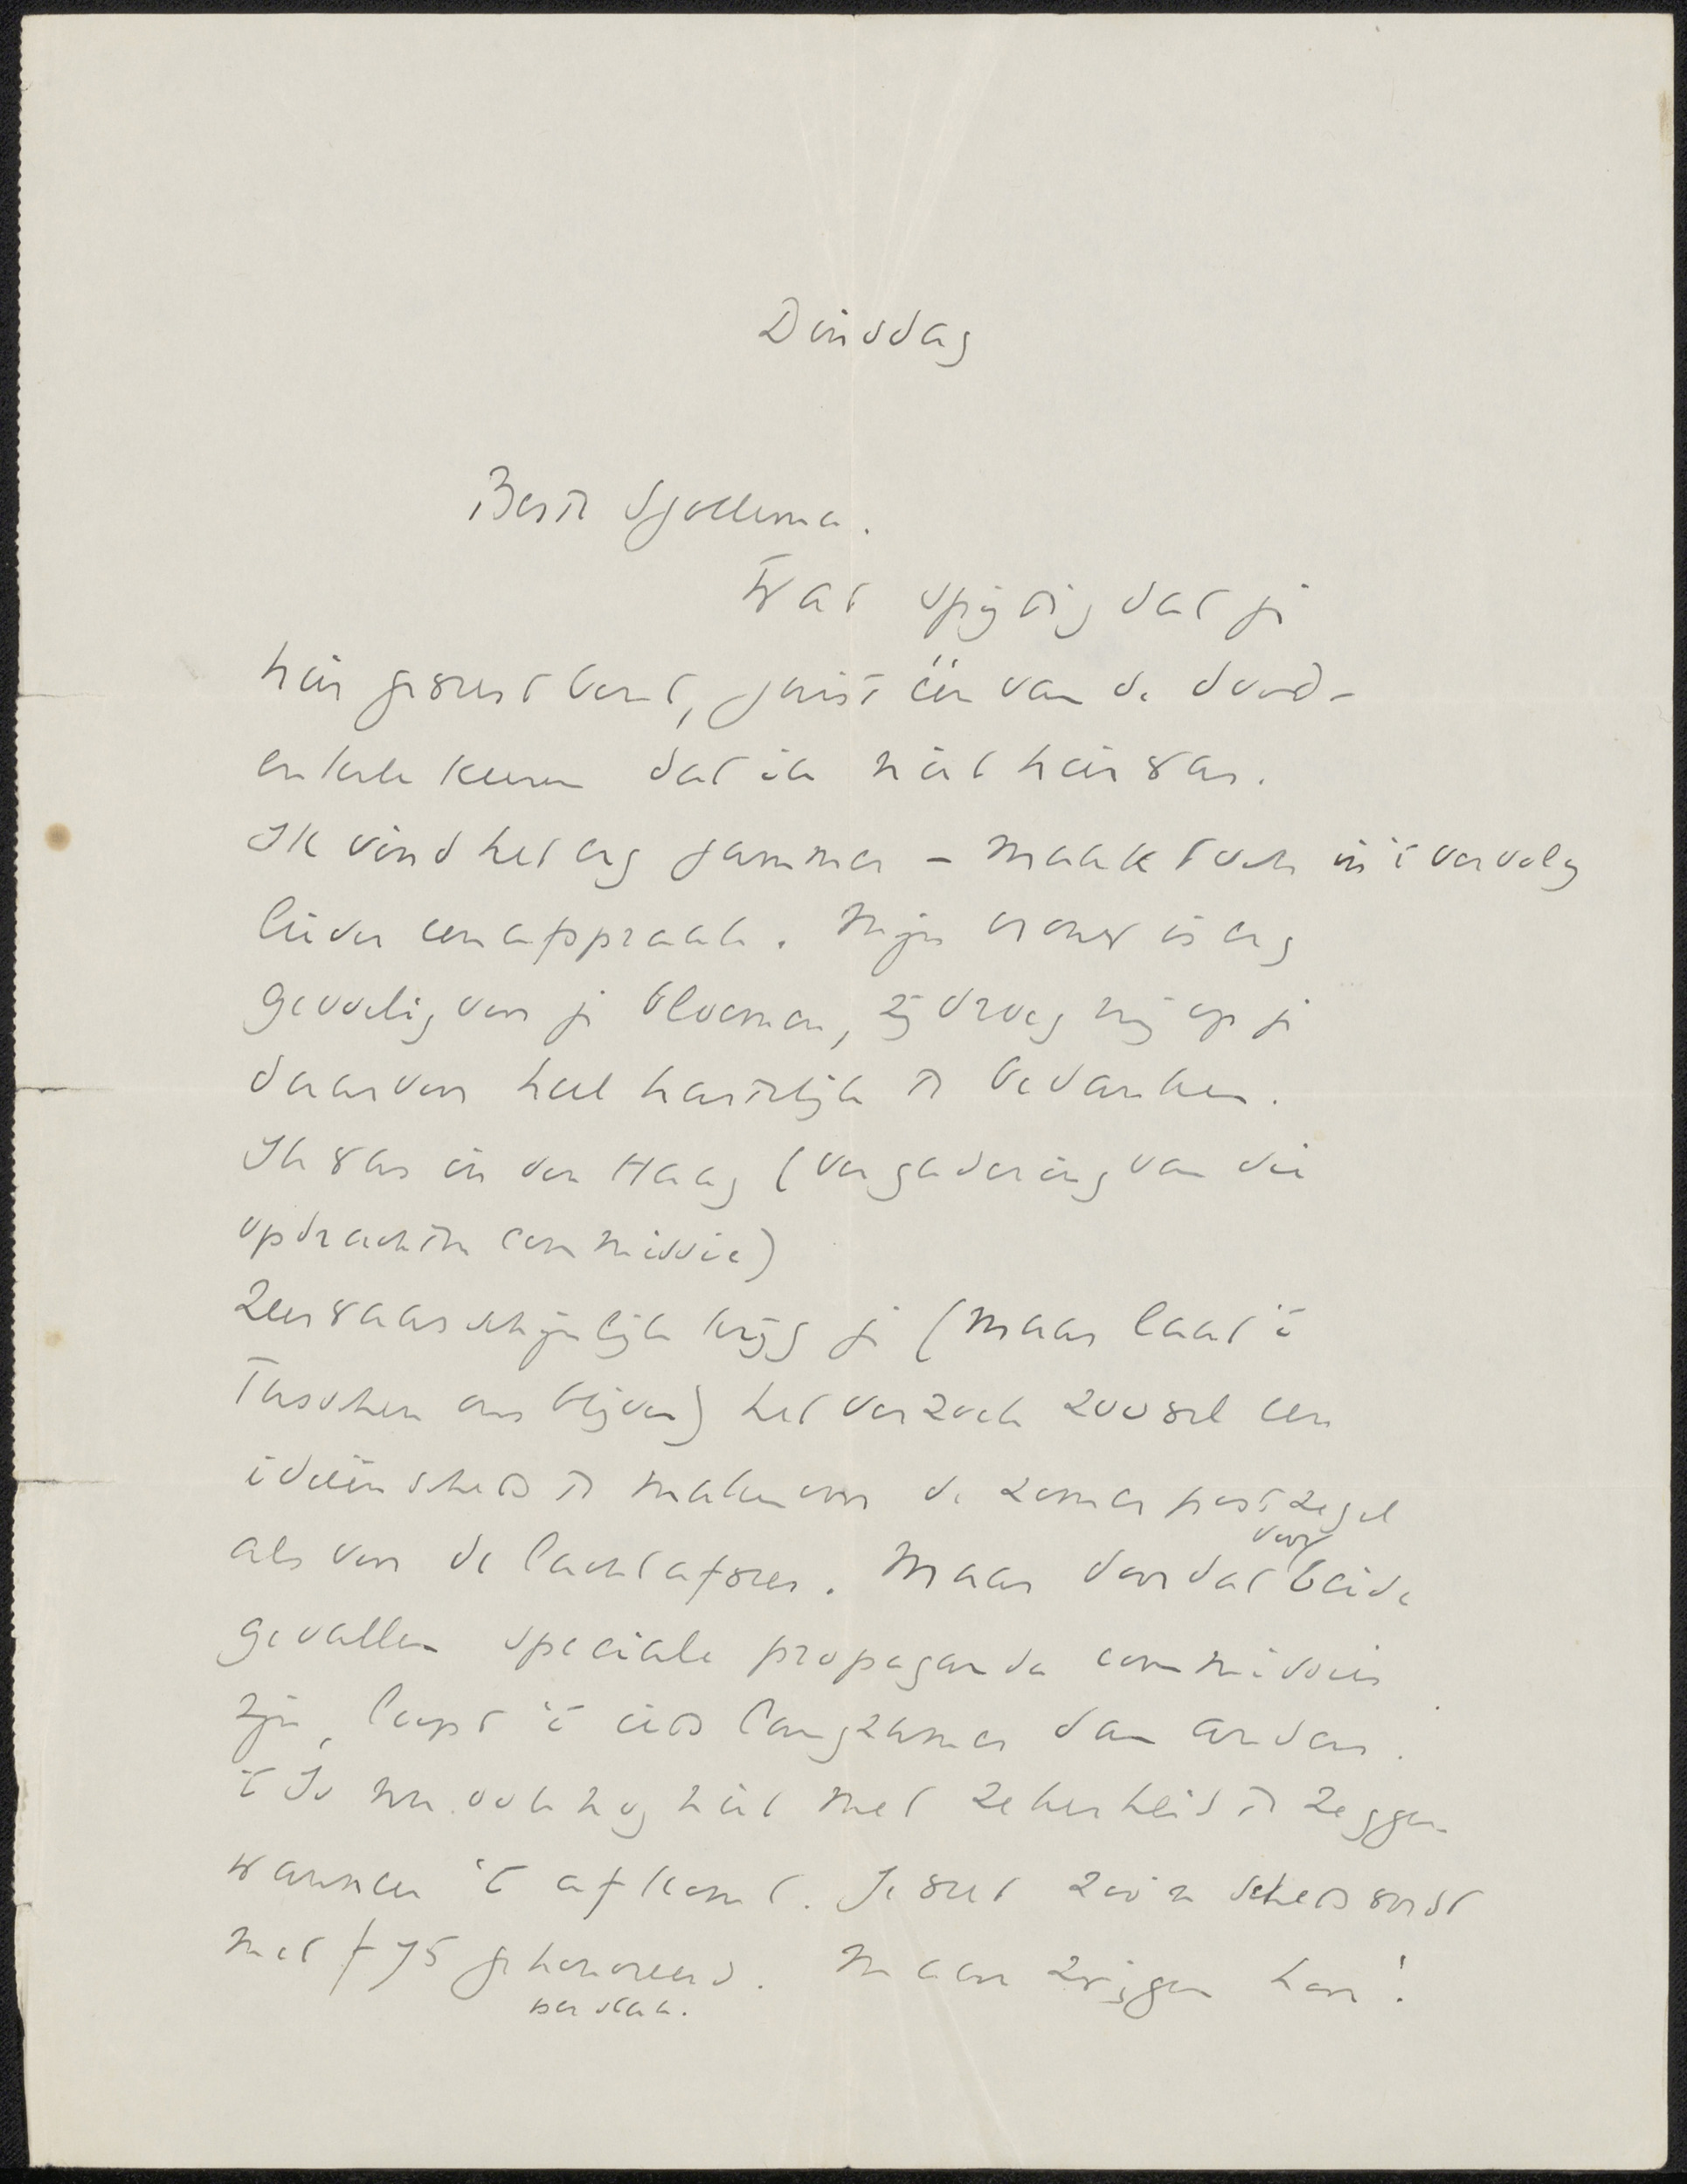 Dinsdag
Beste Sjollema.
Wat spijtig dat je
hier geweest bent, juist één van de dood-
enkele keeren dat ik niet hier was.
Ik vind het erg jammer – maak toch in 't vervolg
liever een afspraak. Mijn vrouw is erg
gevoelig voor je bloemen, zij droeg mij op je
daarvoor heel hartelijk te bedanken.
Ik was in den Haag (vergadering van die
opdrachten commissie)
Zeer waarschijnlijk krijg je (maar laat 't
tusschen ons blijven) het verzoek zoowel een
ideeënschets te maken voor de zomerpostzegel
als voor de luchtafweer. Maar doordat voor beide
gevallen speciale propaganda commissies
zijn, loopt 't iets langzamer dan anders.
't Is nu ook nog niet met zekerheid te zeggen
wanneer 't afkomt. Je weet zoo'n schets wordt
met f 75 gehonoreerd. Maar zwijgen hoor!
per stuk.